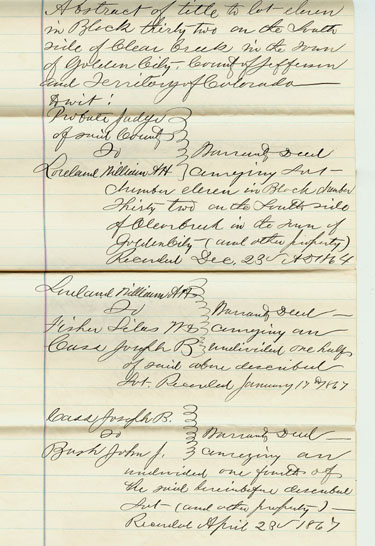 Abstract of title to lot eleven
in Block thirty two on the South
side of Clear Creek in the Town
of Golden City, County of Jefferson
and Territory of Colorado
towit:
Probate Judge
of said County
To Warranty Deed
Loveland William A H conveying Lot
Number eleven in Block Number
Thirty two on the South side
of Clear Creek in the Town of
Golden City (and other property)
Recorded Dec, 23 AD 1864
Loveland William A H
To Warranty Deed
Fisher Silas W & conveying an
Cass Joseph B undivided one half
of said above described
Lot. Recorded January 17th 1867
Cass Joseph B.
To Warranty Deed
Bush John J. conveying an
undivided one fourth of
the said hereinbefore described
Lot (and other property)
Recorded April 23 1867